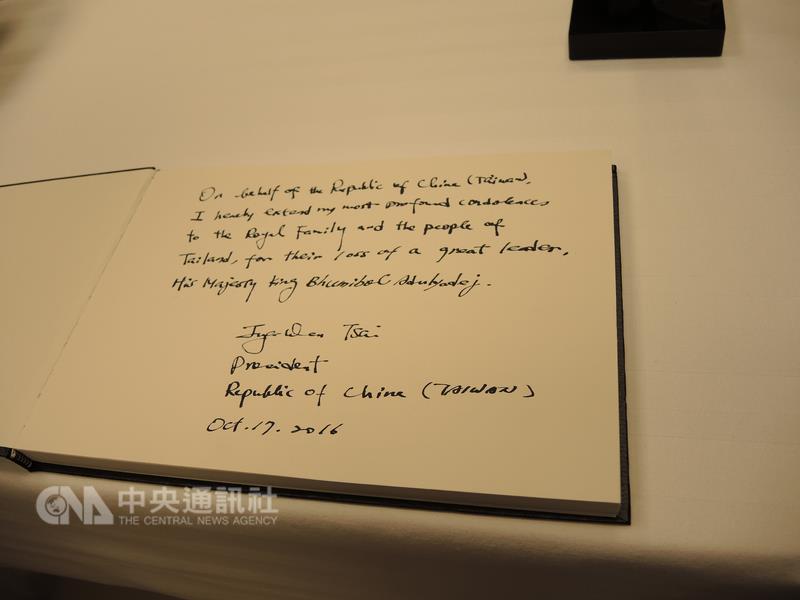 On behalf of the Republic of China (Taiwan),
I hereby extend my most profound condolences
to the Royal Family and the people of
Tailand, for their loss of a great leader,
His Majesty King Bhumibol Adulyadej.
Ing-Wen Tsai
President
Republic of China (TAIWAN)
Oct. 17. 2016
CNA 中央通訊社
THE CENTRAL NEWS AGENCY